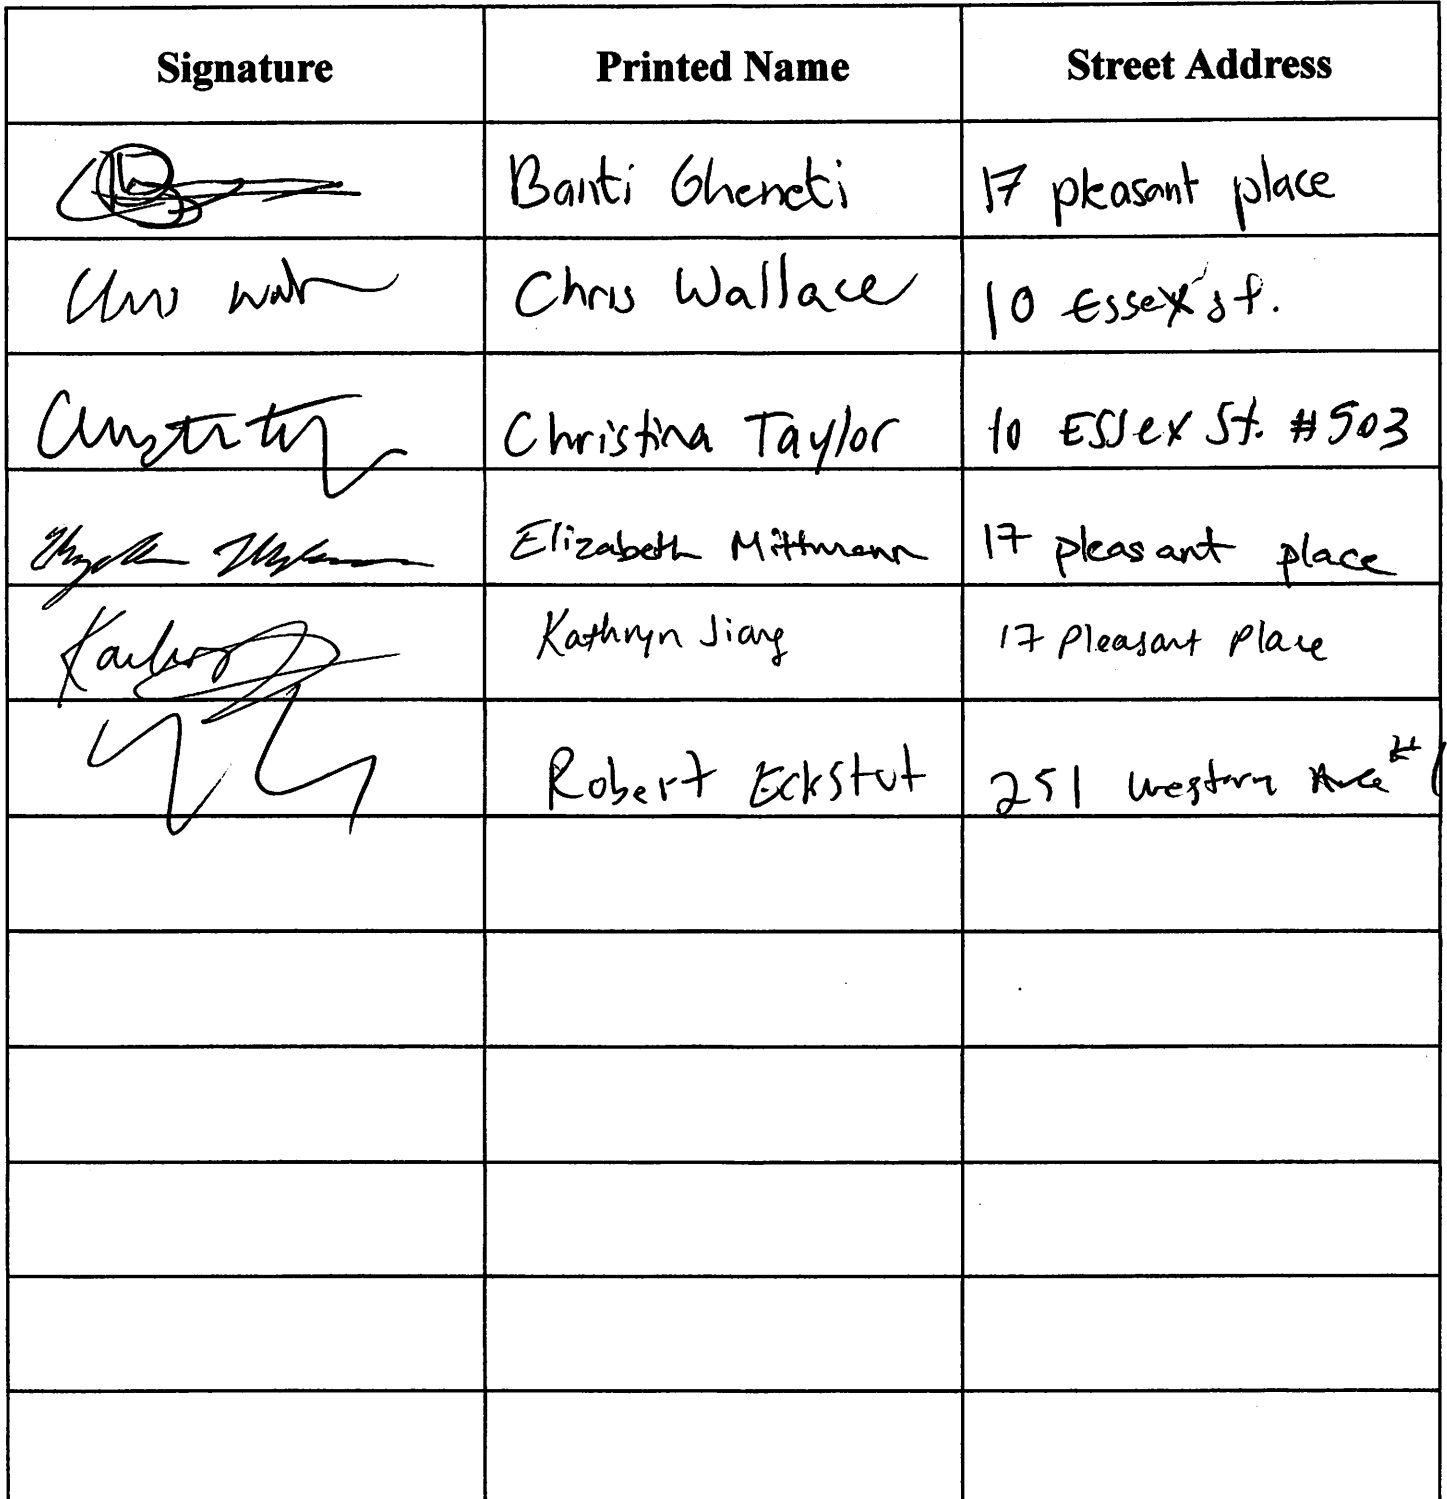 Signature Printed Name Street Address
Banti Gheneti 17 pleasant place
Chris Wallace 10 Essex st.
Christina Taylor 10 Essex St. #503
Elizabeth Mittmann 17 pleasant place
Kathryn Jiang 17 Pleasant Place
Robert Eckstut 251 Western Ave #